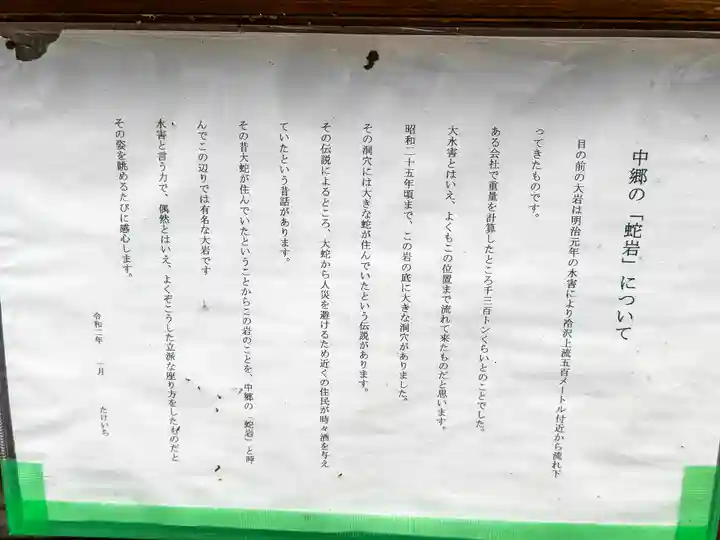 中郷の「蛇岩」について
目の前の大岩は明治元年の水害により冷沢上流五百メートル付近から流れ下
ってきたものです。
ある会社で重量を計算したところ千三百トンくらいとのことでした。
大水害とはいえ、よくもこの位置まで流れて来たものだと思います。
昭和二十五年頃まで、この岩の底に大きな洞穴がありました。
その洞穴には大きな蛇が住んでいたという伝説があります。
その伝説によるところ、大蛇から人災を避けるため近くの住民が時々酒を与え
ていたという昔話があります。
その昔大蛇が住んでいたということからこの岩のことを、中郷の「蛇岩」と呼
んでこの辺りでは有名な大岩です
水害と言う力で、偶然とはいえ、よくぞこうした立派な座り方をしたものだと
その姿を眺めるたびに感心します。
令和二年 一月 たけいち